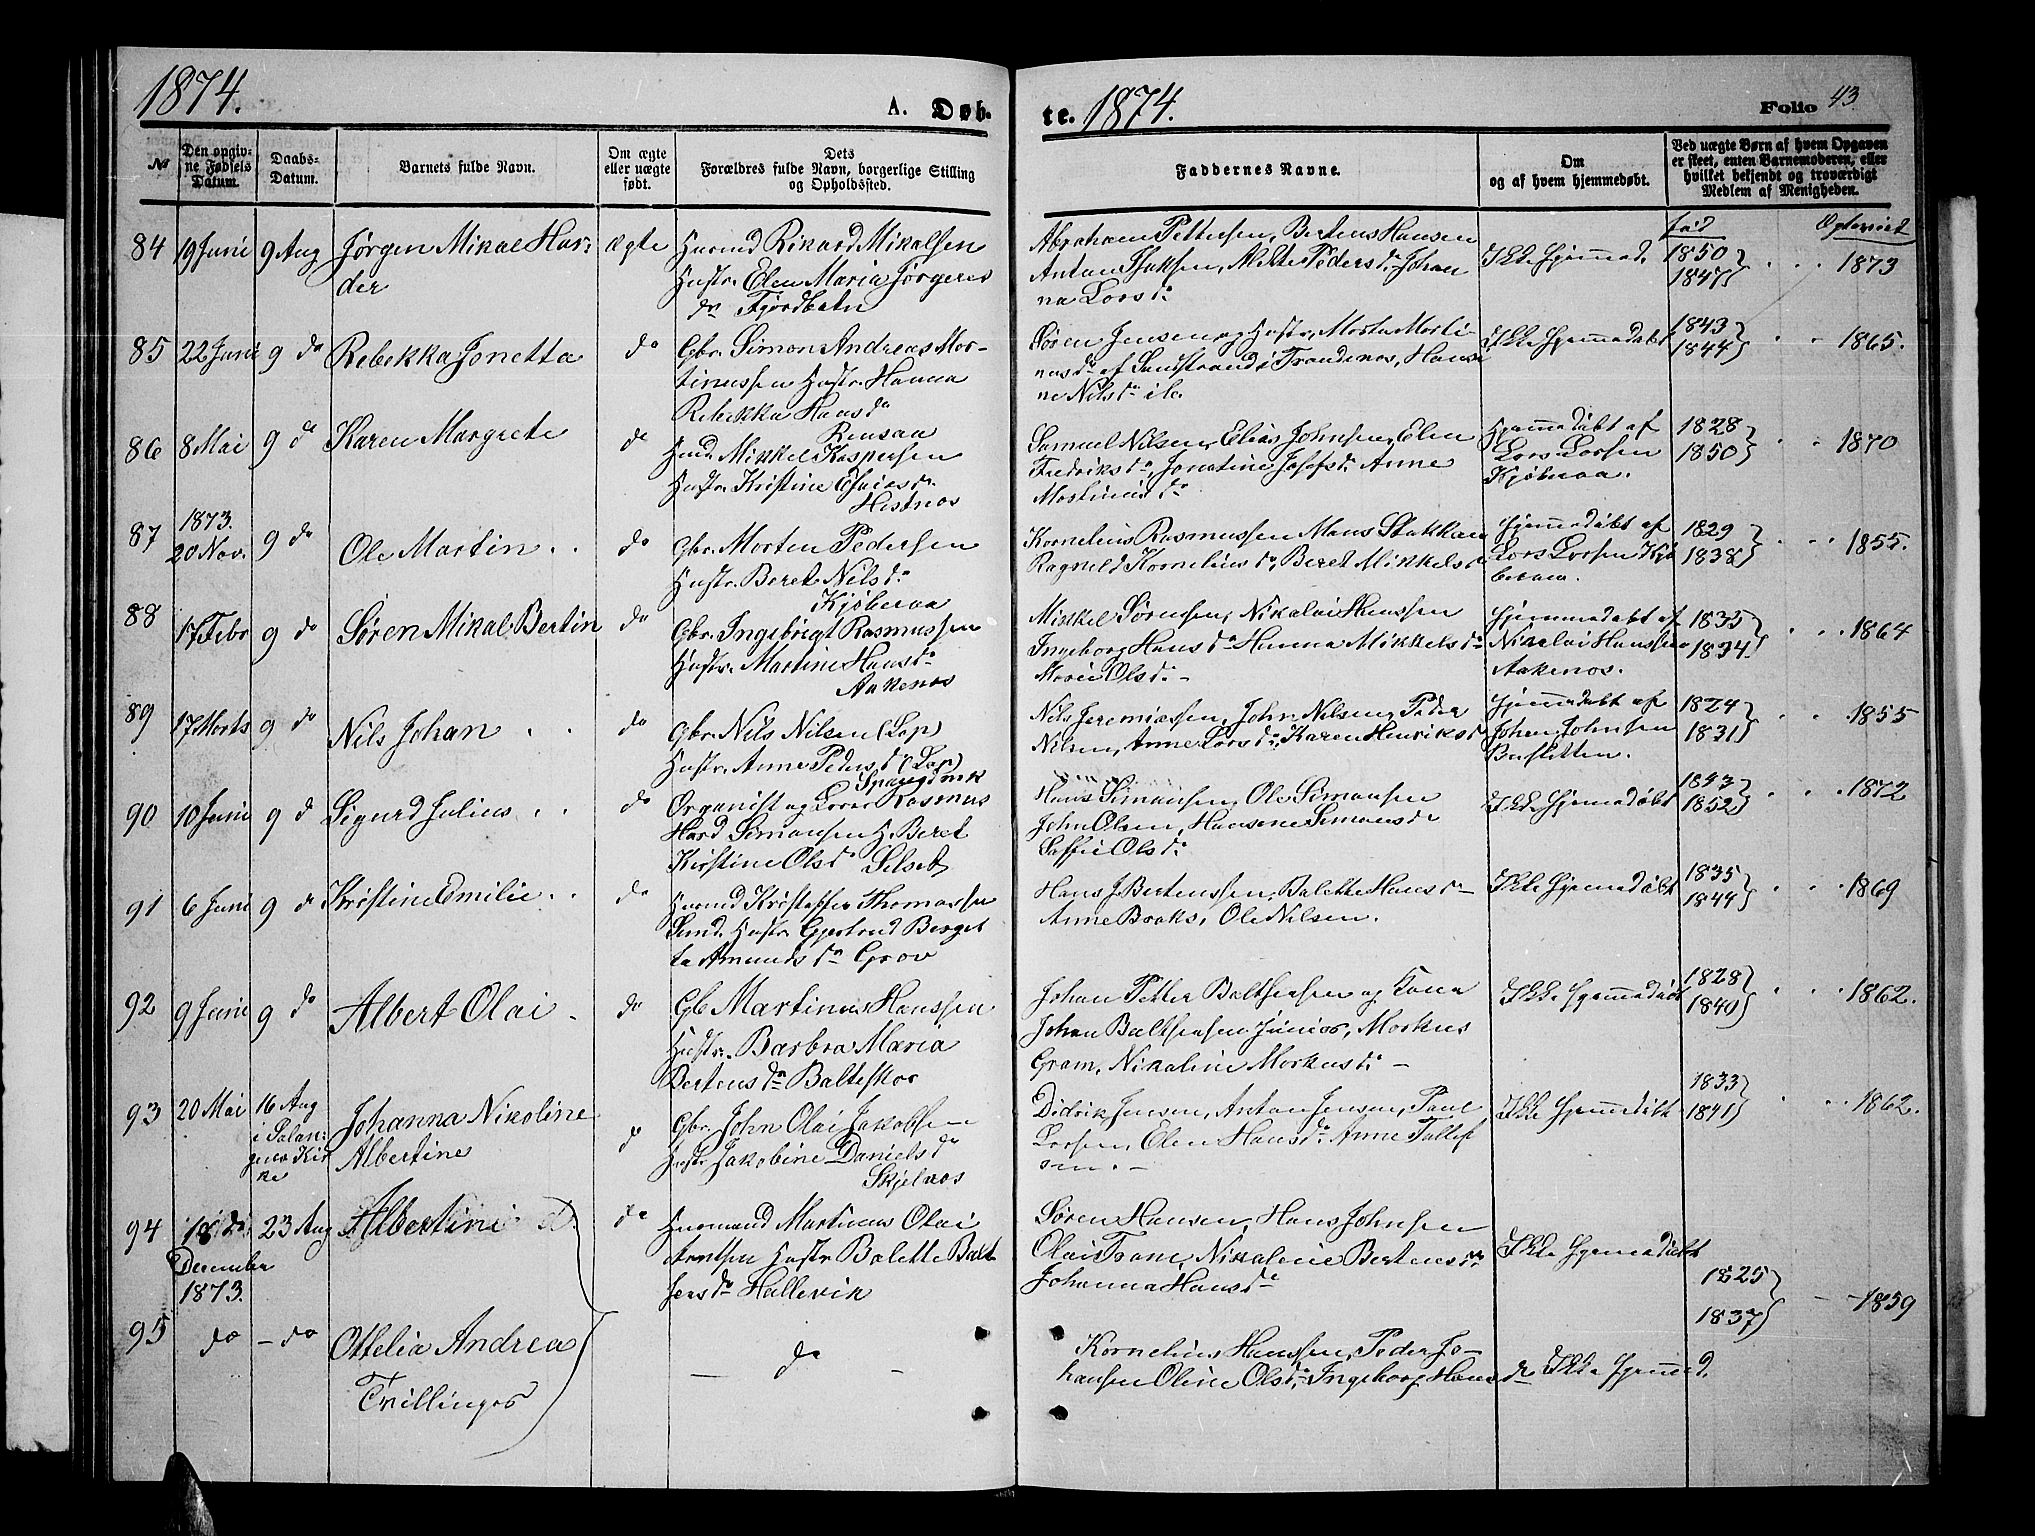 1874.
A. Døb-
te. 1874.
Folio 43
№
Den opgivne Fødsels Datum.
Daabs-Datum.
Barnets fulde Navn.
Om ægte eller uægte født.
Dets Forældres fulde Navn, borgerlige Stilling og Opholdssted.
Faddernes Navne.
Om og af hvem hjemmedøbt.
Ved uægte Børn af hvem Opgaven er skeet, enten Barnemoderen, eller hvilket bekjendt og troværdigt Medlem af Menigheden.
84 19 Juni 9 Aug Jørgen Mikal Har-
der
ægte
Huusmd Rikard Mikalsen
Hustr. Elen Maria Jørgens
dr Fjordbotn
Abraham Pettersen, Bertens Hansen
Antan Isaksen, Mette Pedersd. Johan
na Larsd.
Ikke Hjemmed.
fød
1850
1847
1873
85 22 Juni 9 do Rebekka Jonetta
do
Gbr. Simon Andreas Mor-
tinussen Hustr. Hanna
Rebekka Hansdr
Rensaa
Søren Jensen og Hustr. Marta Marti-
nusdr af Sandstrand i Trondenes, Hansi
ne Nilsdr ib.
Ikke Hjemmedøbt
1843
1844
1865.
86 8 Mai 9 do Karen Margrete
do
Husmd. Mikkel Kaspersen
Hustr. Kristine Esaiasdr.
Hestnes
Samuel Nilsen, Elias Johnsen, Elen
Fredriksdr, Jonetine Josefsdr Anne
Martinusdr
Hjemmedøbt af
Lars Larsen
Kjøbenaa.
1828
1850
1870
87 1873.
20 Nov. 9 do Ole Martin
do
Gbr. Morten Pedersen
Hustr. Beret Nilsdr.
Kjøbenaa
Kornelius Rasmussen Hans
Ragnild Korneliusdr, Beret Mikkelsdr
Hjemmedøbt af
Lars Larsen Kjø
benaa.
1829
1838
1855.
88 17 Febr 9 do Søren Mikal Bertin
do
Gbr. Ingebrigt Rasmussen
Hustr. Martine Hansdr.
Aakenes
Mikkel Sørensen, Nikolai Hanssen
Ingeborg Hansdr Hanna Mikkelsdr
Marie Olsd. -
Hjemmedøbt af
Nikolai Hanssen
Aakenes.
1835
1834
1864
89 17 Marts 9 do Nils Johan
do
Gbr. Nils Nilsen (Lap)
Hustr. Anne Pedersdr (Lap)
Nils Jeremiassen, John Nilsen, Peder
Nilsen, Anne Larsdr, Karen Henriksdr
Hjemmedøbt af
Johan Johnsen
1824
1831
1855
90 10 Juni 9 do Sigurd Julius
do
Organist og Lærer Rasmus
Hard Simonsen H. Beret
Kirstine Olsdr Selset
Hans Simonsen, Ole Simonsen
John Olsen, Hansene Simonsdr
Saffie Olsdr
Ikke Hjemmedøbt
1843
1852
1872
91 6 Juni 9 do Kristine Emilie
do
Huusmd Kristoffer Thomassen
Sund. Hustr Gjertrud Berget
ta Amundsdr Grov
Hans J. Bertenssen, Balette Hansdr
Anne Boaks, Ole Nilsen.
Ikke Hjemmedøbt
1835
1844
1869
92 9 Juni 9 do Albert Olai
do
Gb Martinus Hanssen
Hustr. Barbra Maria
Bertensdr Balteskar
Johan Petter Baltsersen og Kona
Johan Baltsersen Junior, Morkus
Gram, Nikoline Morkusdr -
Ikke Hjemmedøbt
1828
1840
1862.
93 20 Mai 16 Aug
i Salan-
gens Kir
ke
Johanna Nikoline
Albertine
do
Gbr. John Olai Jakobsen
Hustr Jakobine Danielsdr
Skjelnes
Didrik Jensen, Antan Jensen, Paul
Larsen, Elen Hansdr Anne Tollef
sen. -
Ikke Hjemmedøbt
1833
1841
1862.
94 18 de
December
1873.
23 Aug Albertine
do
Huusmand Martinus Olai
Arntsen Hustr Balette Balt
sersdr Hallevik
Søren Hansen, Hans Johnsen
Olai Trane, Nikoline Bertensdr
Johanna Hansdr
Ikke Hjemmedøbt
1825
1837
1859
95 do - do Ottelia Andrea
Tvillinger
- do -
Kornelius Hanssen, Peder Jo-
hansen Oline Olsdr, Ingeborg Hans
dr Ikke Hjemmed.